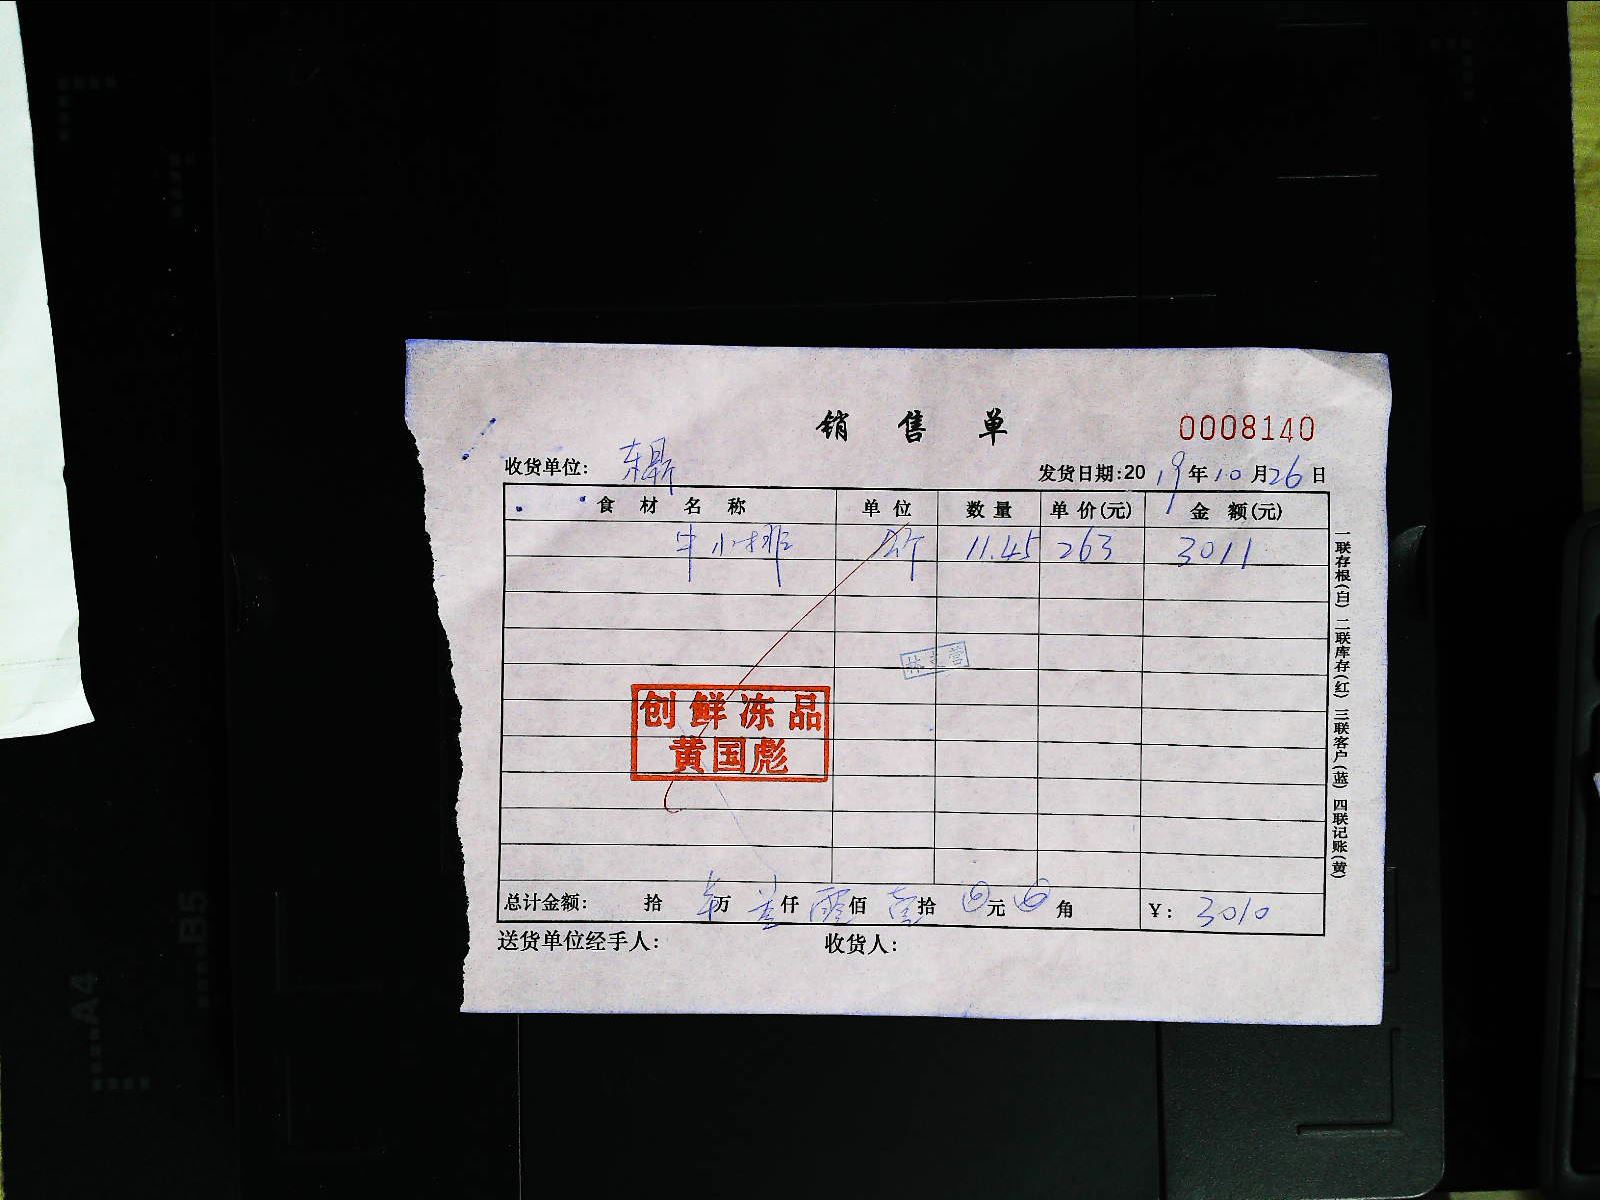 销售单
0008140
收货单位: 东鼎
发货日期:2019年10月26日
食材名称 单位 数量 单价(元) 金额(元)
牛小排 斤 11.45 263 3011
创鲜冻品
黄国彪
总计金额: 拾 万 叁仟 零佰 壹拾 元 角 ¥: 3010
送货单位经手人: 收货人:
一联存根(白) 二联库存(红) 三联客户(蓝) 四联记账(黄)
A4
B5